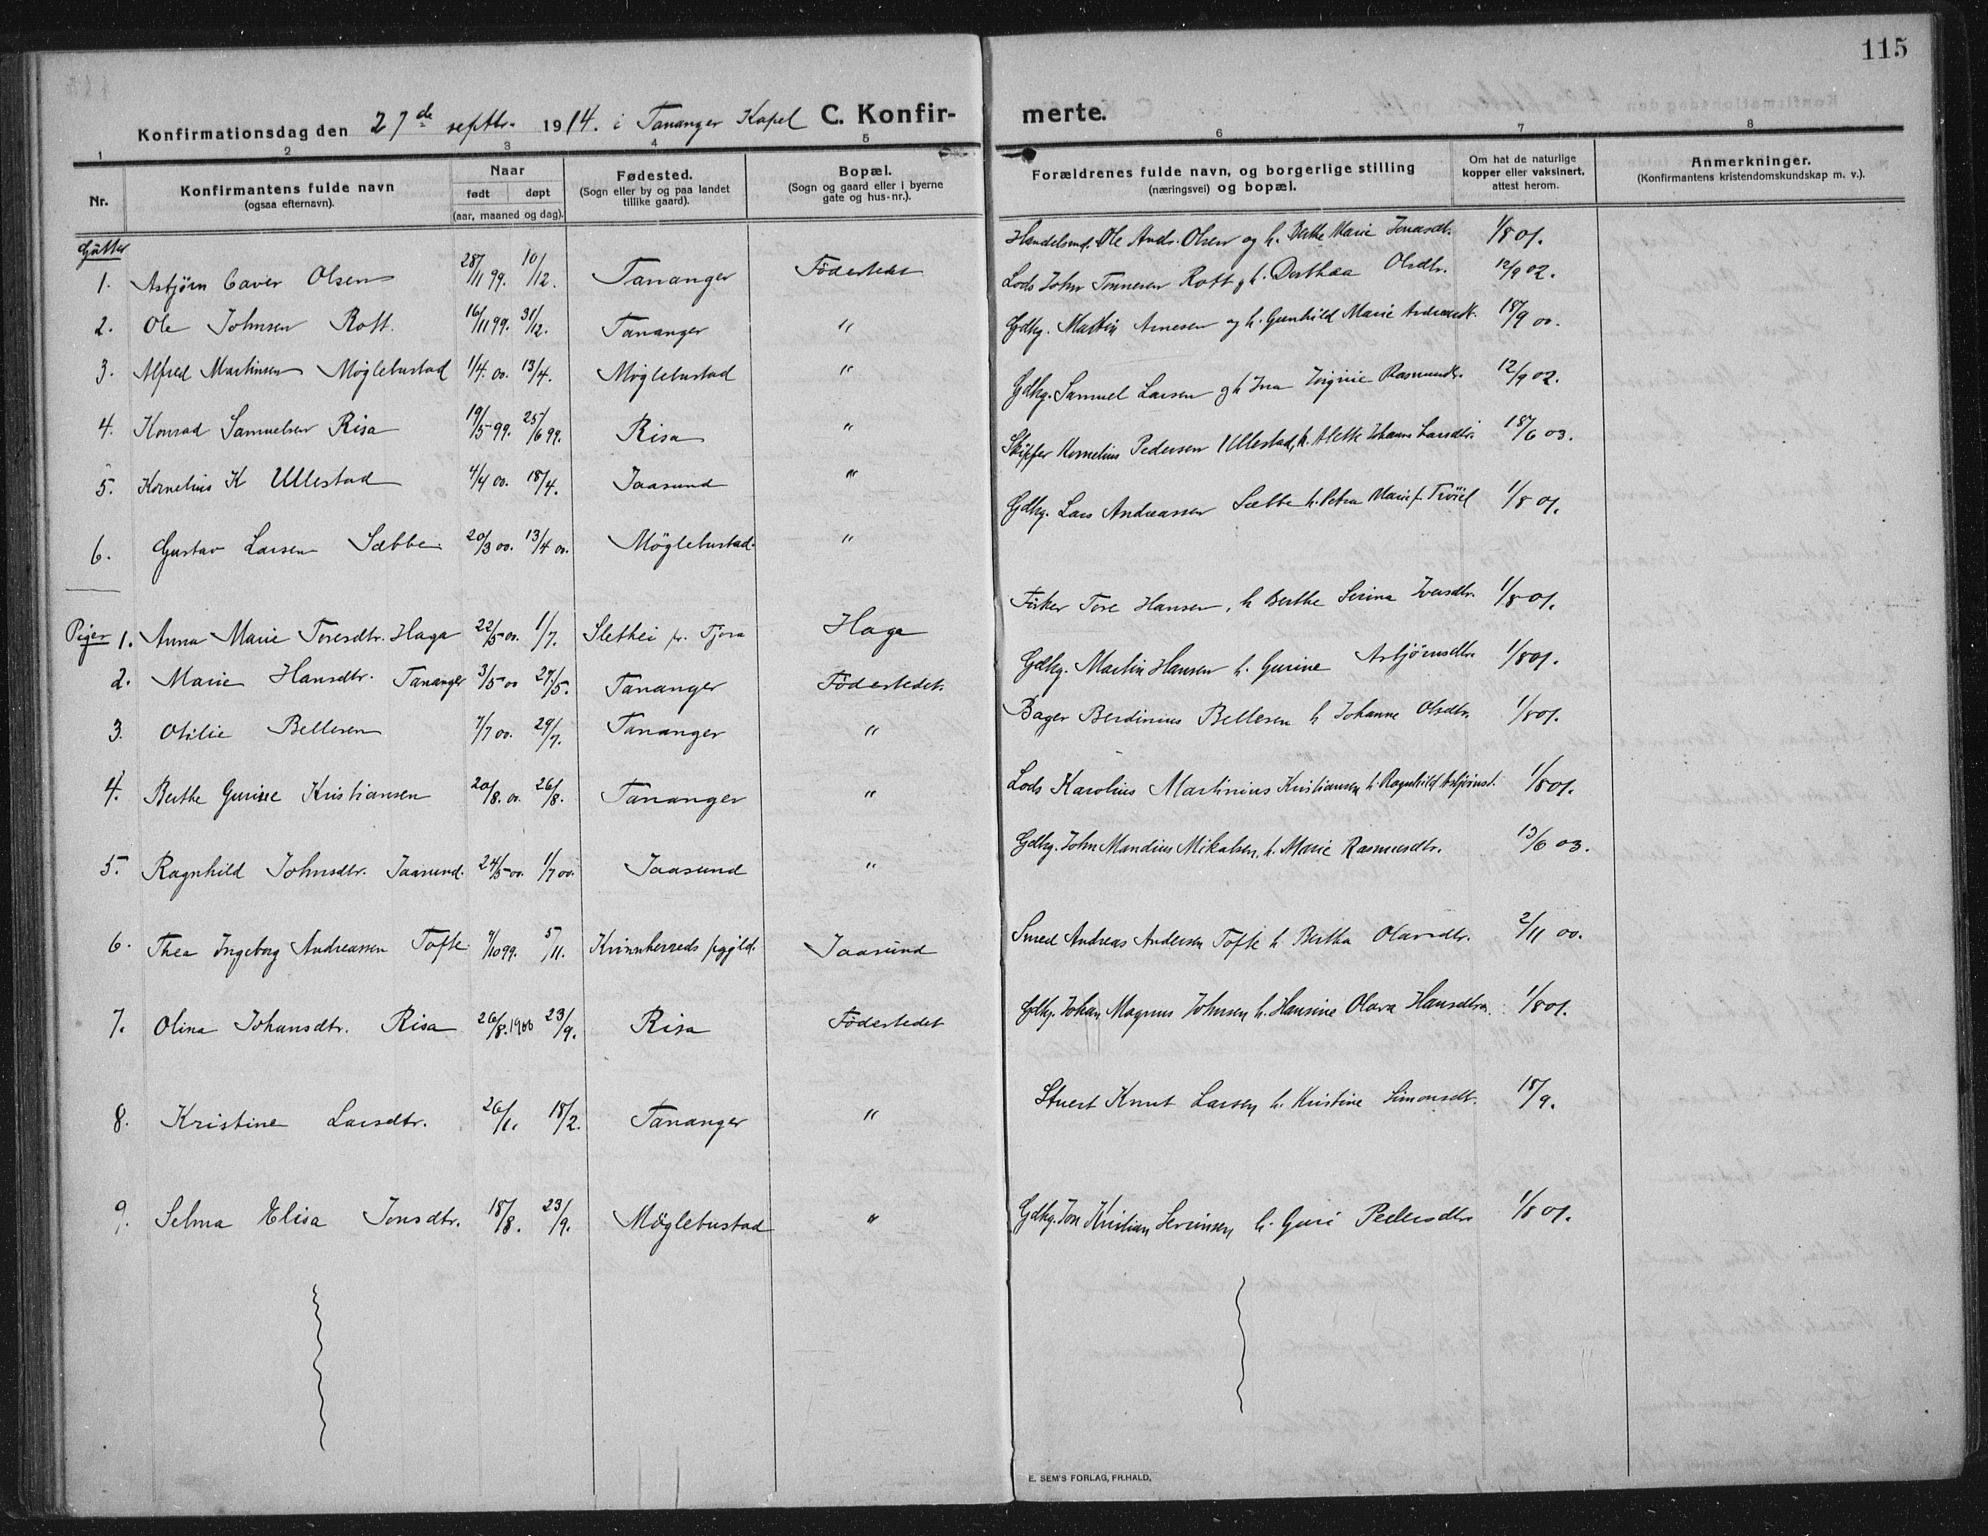 115
Konfirmationsdag den 27de septbr. 1914. i Tananger Kapel C. Konfir- merte.
1 2 3 4 5 6 7 8
Nr. Konfirmantens fulde navn (ogsaa efternavn). Naar født døpt (aar, maaned og dag). Fødested. (Sogn eller by og paa landet tillike gaard). Bopæl. (Sogn og gaard eller i byerne gate og hus-nr.). Forældrenes fulde navn, og borgerlige stilling (næringsvei) og bopæl. Om hat de naturlige kopper eller vaksinert, attest herom. Anmerkninger. (Konfirmantens kristendomskundskap m. v.).
Gutter
1. Asbjørn Olsen 28/11 99. 10/12. Tananger Födestedet Handelsmd. Ole Ands. Olsen og h. Berthe Marie Jonasdt. 1/8 01.
2. Ole Johnsen Rott. 16/11 99. 31/12. Tananger " Lods John Tønnesen Rott g h. Dorthea Olsdtr. 12/9 02.
3. Alfred Martinsen Møglebustad 1/4. 00. 13/4. Møglebustad " Gdbg. Martin Arnesen og h. Gunhild Marie 18/9 00.
4. Konrad Samuelsen Risa 19/5 99. 25/6 99. Risa " Gdbg. Samuel Larsen g h Ina Jorgine Rasmusdtr. 12/9 02.
5. Kornelius K Ullestad 4/4 00. 18/4. Jaasund " Skipper Kornelius Pedersen Ullestad, h. Alette Johanne Larsdtr. 18/6 03.
6. Gustav Larsen Sæbbe 20/3 00. 13/4 00. Möglebustad. " Gdbg. Lars Andreassen Sæbbe h. Petra Marie f. 1/8 01.
Piger 1. Anna Marie Toresdtr. Haga 22/5 00. 1/7. Slethei pr. Tjora Haga Fisker Tore Hansen, h Berthe Serina Iversdtr. 1/8 01.
2. Marie Hansdtr. Tananger 3/5 00 27/5. Tananger Födestedet. Gdbg. Martin Hansen h. Gurine Asbjørnsdtr. 1/8 01.
3. Otilie Bellesen 7/7 00. 29/7. Tananger " Bager Berdinius Bellesen h Johanne Olsdtr. 1/8 01.
4. Berthe Gurine Kristiansen 20/8. 00. 26/8. Tananger " Lods Karolius Martinius Kristiansen h. Ragnhild Asbjørnsd. 1/8 01.
5. Ragnhild Johnsdtr. Jaasund. 24/5 00. 1/7 00. Jaasund " Gdbg. John Mandius Mikalsen, h. Marie Rasmusdtr. 13/6 03.
6. Thea Ingeborg Andreassen Tofte. 9/10 99. 5/11. Kvinnherreds pgjld. Jaasund Smed Andreas Andersen Tofte h Bertha Olavsdtr. 2/11 00.
7. Olina Johansdtr. Risa 26/8. 1900 23/9. Risa Födestedet Gdbg. Johan Magnus Johnsen h. Hansine Olava Hansdtr. 1/8 01.
8. Kristine Larsdtr. 26/1. 18/2. Tananger " Stuert Knut Larsen h. Kristine Simonsdt. 18/9.
9. Selma Elisa Jonsdtr. 18/8. 23/9. Möglebustad " Gdbg. Jon Kristian Sevrinsen h. Guri Pedersdtr 1/8 01.
E. SEM'S FORLAG, FR.HALD.